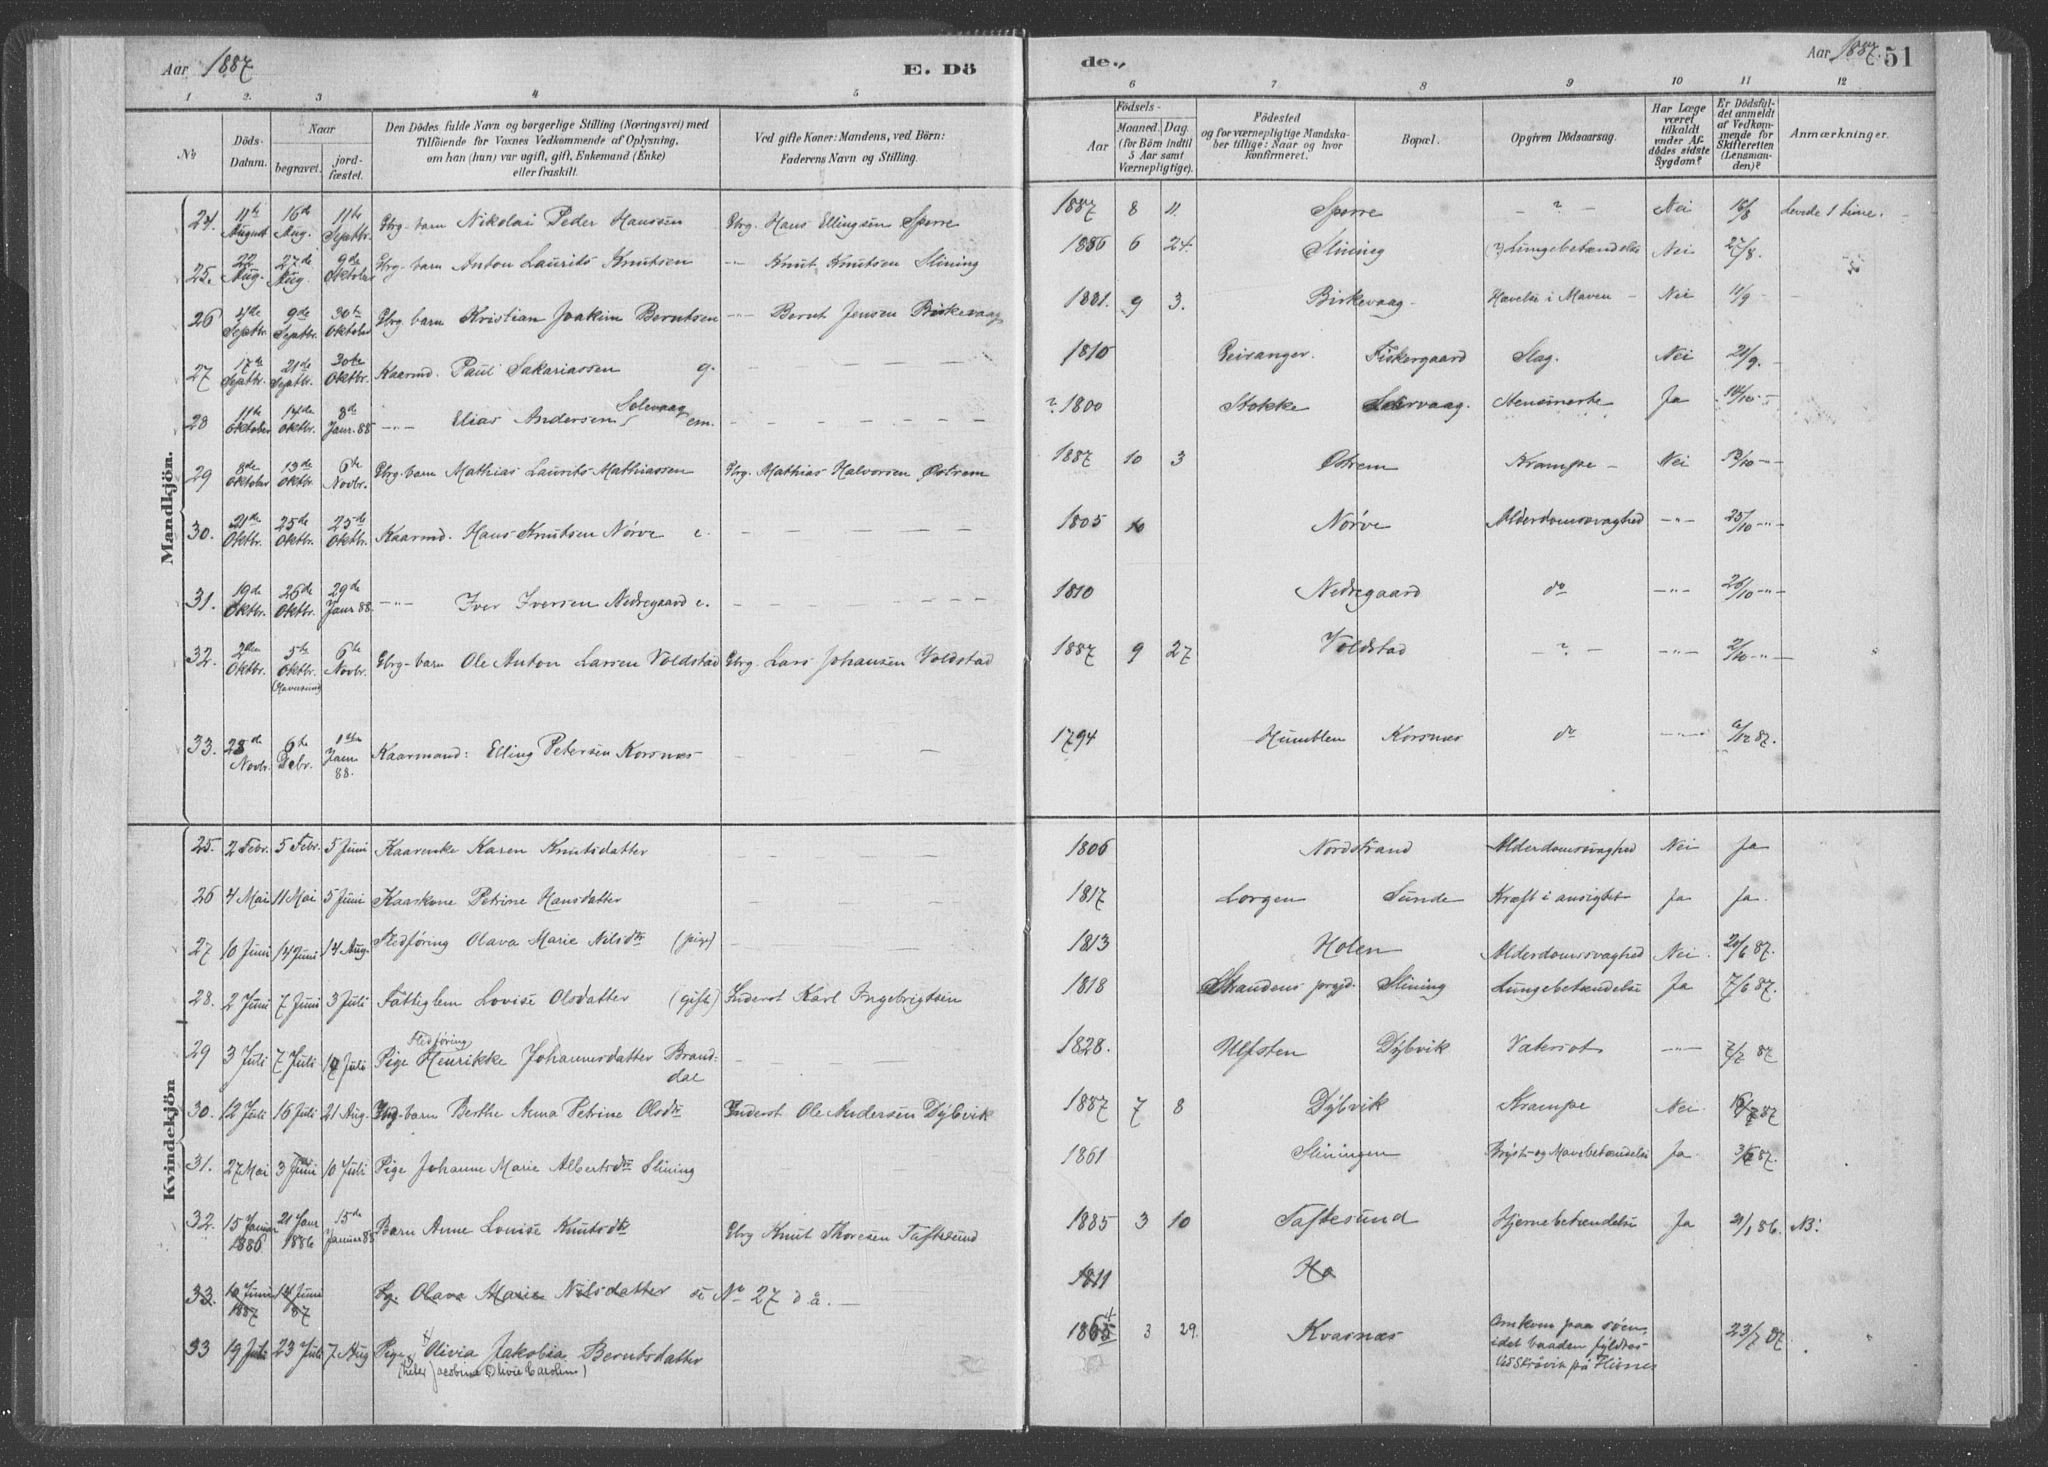 Aar 1887 E. Dö
de., Aar 1887. 51
1 2. 3 4 5 6 7 8 9 10 11 12
No Döds-Datum. Naar begravet. jordfæstet.
Den Dödes fulde Navn og borgerlige Stilling (Næringsvei) med Tilföiende for Voxnes Vedkommende af Oplysning, om han (hun) var ugift, gift, Enkemand (Enke) eller fraskilt.
Ved gifte Koner: Mandens, ved Börn: Faderens Navn og Stilling.
Födsels- Aar Maaned. Dag. (for Börn indtil 5 Aar samt Værnepligtige).
Födested og for værnepligtige Mandskaber tillige: Naar og hvor konfirmeret.
Bopæl.
Opgiven Dödsaarsag.
Har Læge været tilkaldt under Afdödes sidste Sygdom?
Er Dödsfaldet anmeldt af Vedkommende for Skifteretten (Lensmanden)?
Anmærkninger.
Mandkjön.
24. 11te August 16de Aug. 11te Septbr. Gbrg. barn Nikolai Peder Hanssen Gbrg. Hans Ellingsen Sperre 1887 8 11. Sperre - ? - Nei 16/8 levede 1 time.
25. 22 Aug. 27de Aug. 9de Oktober Gbrg-barn Anton Laurits Knutsen -"- Knut Knutsen Slining 1886 6 24. Slining (?) Lungebetændelse Nei 27/8.
26 4de Septbr 9de Septbr. 30te Oktober Gbrg barn Kristian Joakim Berntsen -"- Bernt Jensen Birkevaag 1881. 9 3. Birkevaag. Hævelse i Maven - Nei 11/9 -
27 17te Septbr. 21de Septbr. 30te Oktbr. Kaarmd. Paul Sakariassen g. 1810 Geiranger. Fiskergaard Slag. Nei 21/9. -
28 11te Oktober 14de Oktbr. 8de Janr. 88 -"- Elias Andersen Solevaag em. ? 1800 Stokke Solevaag. Stensmerte Ja 14/10 -
29 8de Oktober 13de Oktbr. 6te Novbr. Gbrg-barn Mathias Laurits Mathiassen Gbrg. Mathias Halvorsen Østrem 1887 10 3 Østrem Krampe - Nei 13/10 -
30. 21de Oktbr. 25de Oktbr. 25de Oktbr. Kaarmd. Hans Knutsen Nørve e. 1805 Nørve Alderdomssvaghed -"- 25/10 -"-
31. 19de Oktbr. 26de Oktbr. 29de Janr 88. -"- Iver Iversen Nedregaard e. 1810 Nedregaard do -"- 26/10 -"-
32. 2den Oktbr. 5te Oktbr. (Havnsund) 6te Novbr. Gbrg-barn Ole Anton Larsen Voldstad Gbrg. Lars Johansen Voldstad 1887 9 27 Voldstad - ? - -"- 2/10 -"-
33. 28de Novbr. 6te Debr. 1ste Jan 88. Kaarmand: Elling Petersen Korsnæs 1794 Humblen Korsnæs do -"- 6/12 87.
Kvindekjön
25. 2 Febr. 5 Febr. 5 Juni Kaarenke Karen Knutsdatter 1806 Nordstrand Alderdomssvaghed Nei Ja
26 4 Mai 11 Mai 5 Juni Kaarkone Petrine Hansdatter 1817 Lorgen Sunde Kræft i ansigtet Ja Ja.
27 10 Juni 14 Juni 14 Aug. Fledføring Olava Marie Nilsdtr (pige) 1813 Holen Alderdomssvaghed Nei. 20/6 87.
28. 2 Juni 7 Juni 3 Juli Fattiglem Lovise Olsdatter (gift) Inderst Karl Ingebrigtsen 1818 Strandens prgjd. Slining Lungebetændelse Ja 7/6 87.
29 3 Juli 7 Juli Juli Pige Fledføring Henrikke Johannesdatter Brandal 1828. Ulfsten Dybvik Vatersot -"- 7/7 87
30. 12 Juli 16 Juli 21 Aug. barn Berthe Anna Petrine Olsdtr Inderst Ole Andersen Dybvik 1887 7 8 Dybvik Krampe Nei 16/7 87
31. 27 Mai 3 Juni 10 Juli Pige Johanne Marie Albertsdtr Slining 1861 Sliningen Bryst- og Mavebetændelse Ja 3/6 87.
32. 15 Januar 1886 21 Janr 1886 15de Januar 88 Barn Anne Louise Knutsdtr Gbrg Knut Thoresen Taftesund 1885 3 10 Taftesund Hjernebetændelse Ja 21/1 86. NB!
33. 10 Juni 1887 14 Juni 87 Pg. Olava Marie Nilsdatter se No 27 d å. - 1811 Ho
33 19 Juli 23 Juli 7 Aug Pige Olivia Jakobia Berntsdatter 1865 3 29. Kvasnæs Omkom paa søen, idet baaden fyldtes 23/7 87.
(heter Jacobine Olivie Caroline) ved Skråvik på Hisnes